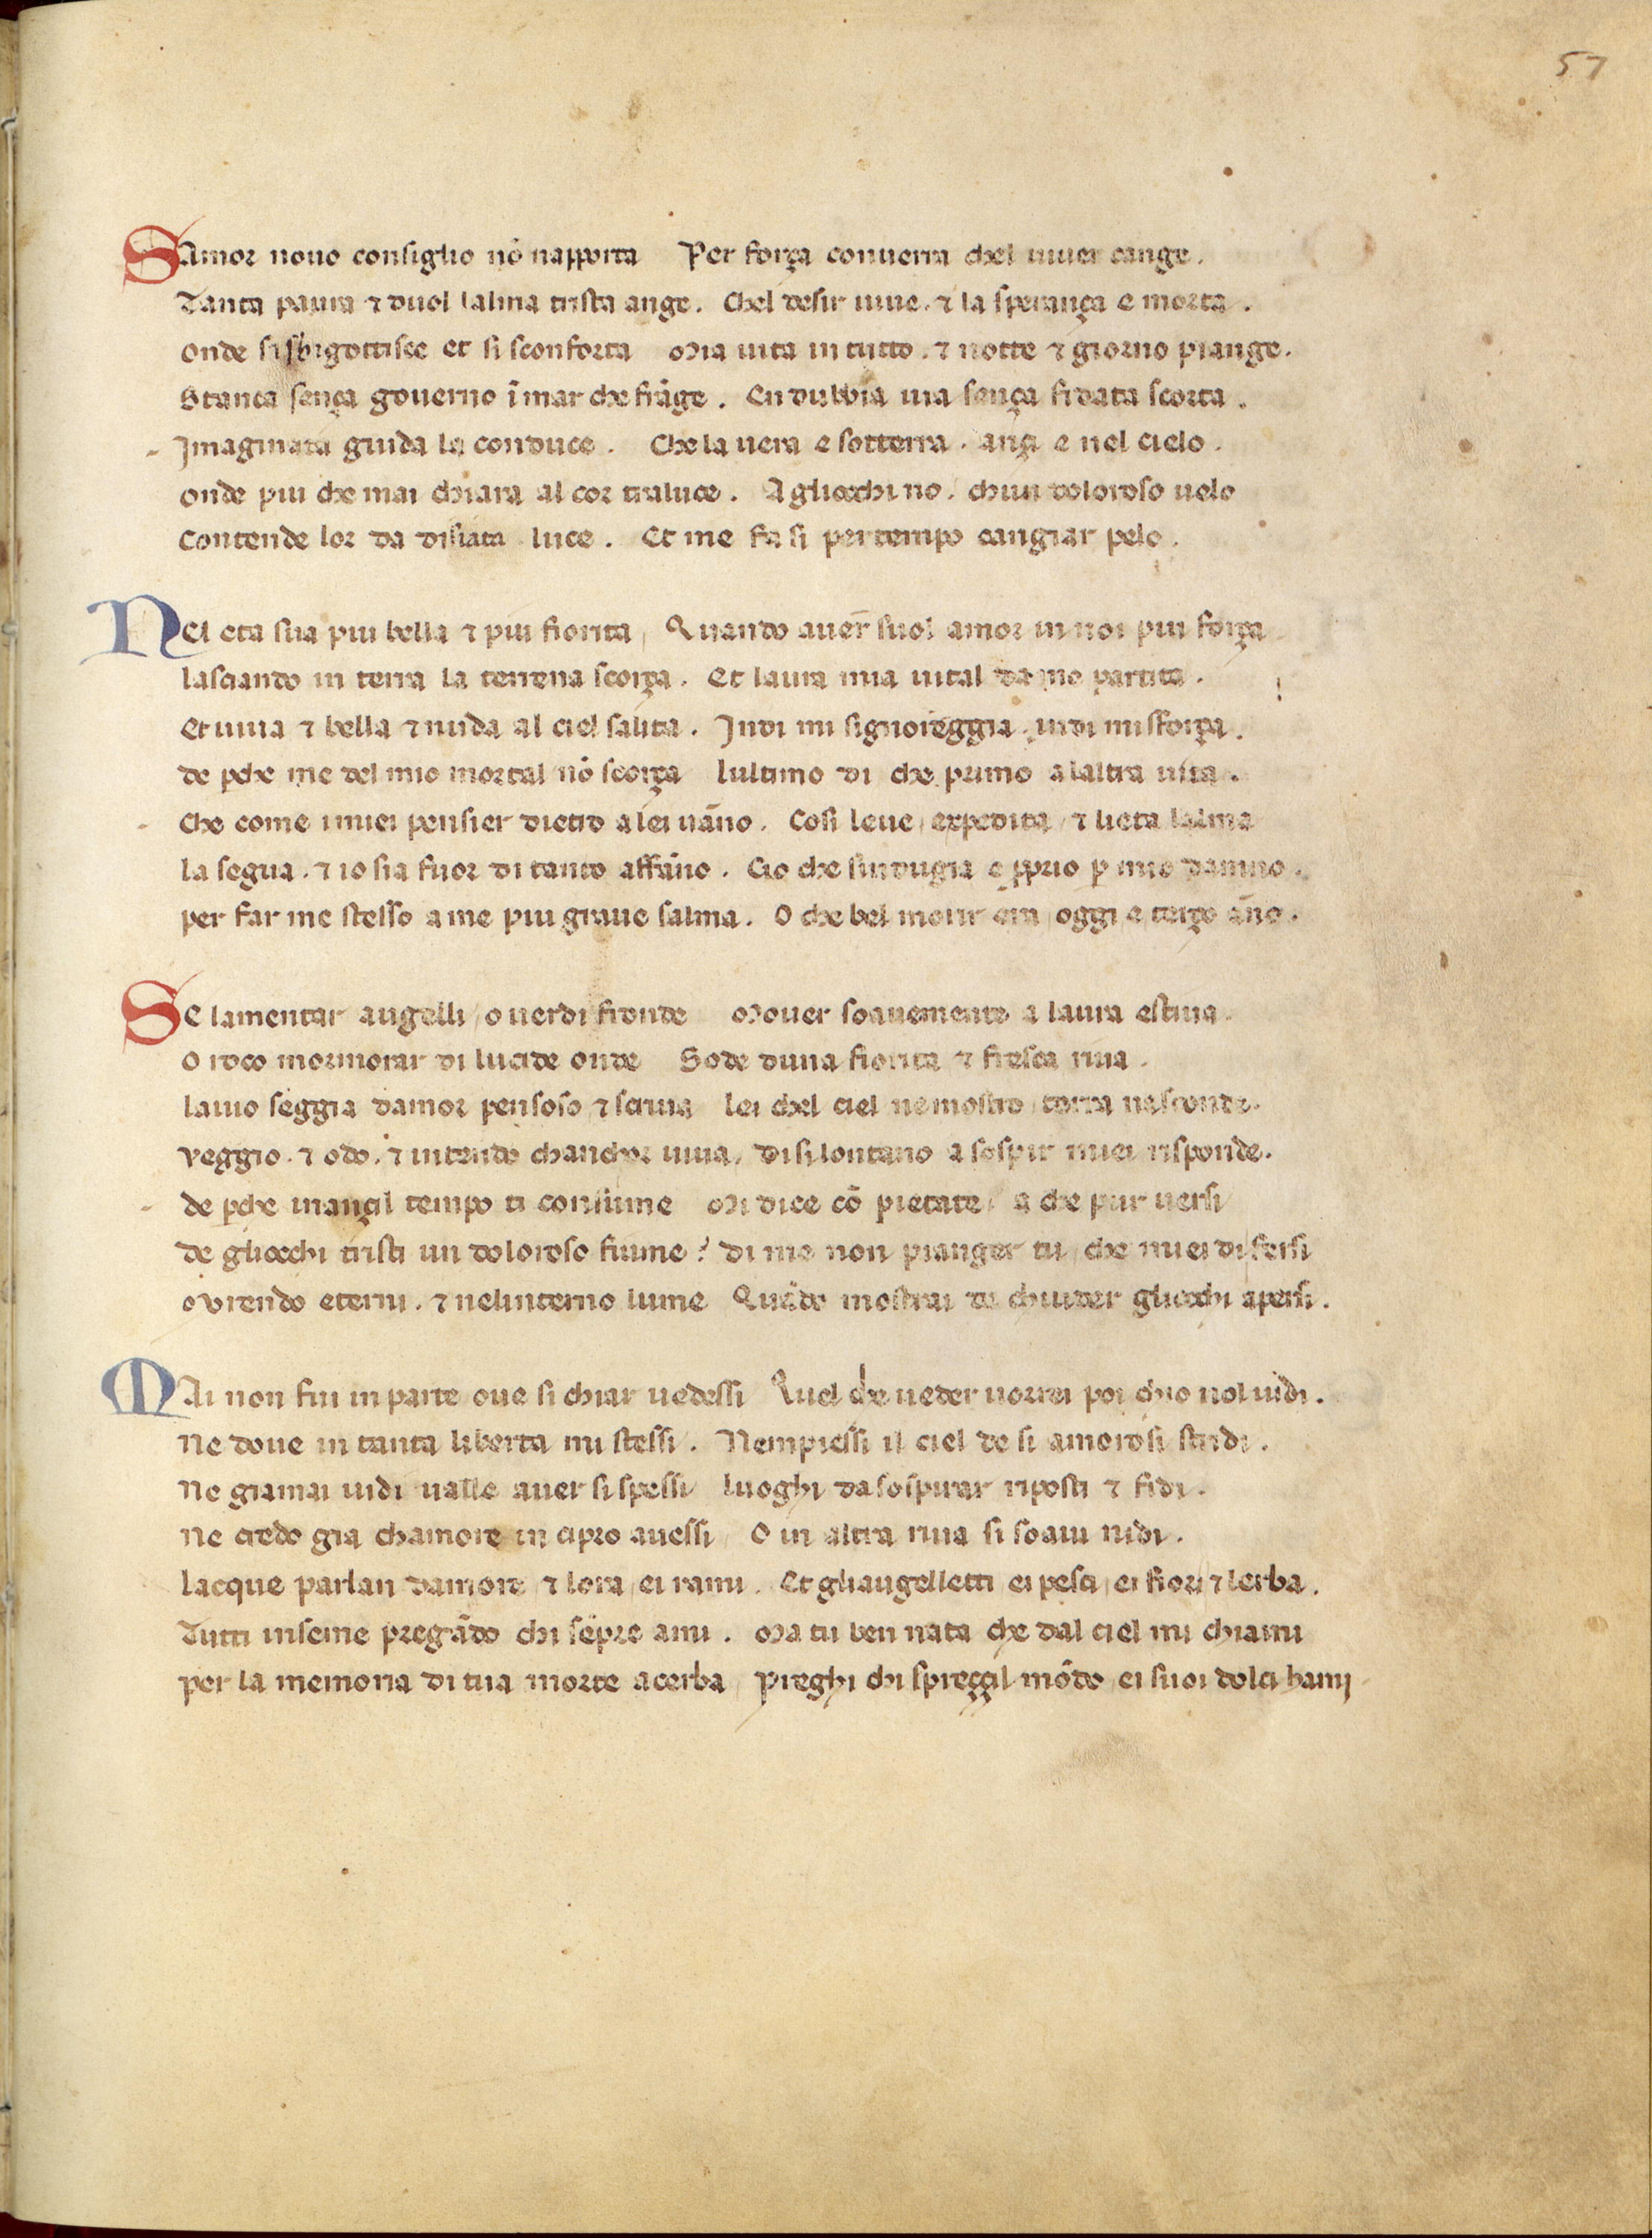 57
SAmor nouo consiglio nō napporta Per força conuerra chel uiuer cange.
Tanta paura ⁊ duol lalma trista ange. Chel desir uiue. ⁊ la sperança e morta.
onde si sbigottisce et si sconforta Mia uita in tutto. ⁊ notte ⁊ giorno piange.
Stanca sença gouerno ī mar che frāge. En dubbia uia sença fidata scorta.
Imaginata guida la conduce. Che la uera e sotterra. ançi e nel cielo.
onde piu che mai chiara al cor traluce. Agliocchi no. chun doloroso uelo
Contende lor da disiata luce. Et me fa si per tempo cangiar pelo.
NEl eta sua piu bella ⁊ piu fiorita / Quando auer suol amor in noi piu força
lasciando in terra la terrena scorça. Et laura mia uital da me partita.
Et uiua ⁊ bella ⁊ nuda al ciel salita. Indi mi signoreggia. indi mi sforça.
de ꝑche me del mio mortal nō scorça lultimo di che primo a laltra uita.
Che come imiei pensier dietro a lei uāno. Cosi leue / expedita / ⁊ lieta lalma
la segua. ⁊ io sia fuor di tanto affāno. Cio che sindugia e ꝓprio ꝑ mio damno.
per far me stesso a me piu graue salma. O che bel morir era / oggi e terço āno.
SE lamentar augelli / o uerdi fronde Mouer soauemente a laura estiua.
O roco mormorar di lucide onde Sode duna fiorita ⁊ fresca riua.
lauio seggia damor pensoso ⁊ scriua lei chel ciel ne mostro / terra nasconde.
veggio. ⁊ odo. ⁊ intendo chanchor uiua. Di si lontano a sospir miei risponde.
de ꝑche inançil tempo ti consume Mi dice cō pietate / a che pur uersi
de gliocchi tristi un doloroso fiume? di me non pianger tu / che miei di fersi
ovrendo eterni. ⁊ nelinterno lume Quādo mostrai de chiuder gliocchi apersi.
MAi non fui in parte oue si chiar uedessi Quel che ueder uorrei poi chio nol uidi.
Ne doue in tanta liberta mi stessi. Nempiessi il ciel de si amorosi stridi.
Ne giamai uidi ualle auer si spessi / luoghi da sospirar riposti ⁊ fidi.
Ne credo gia chamore in cipro auessi / O in altra riua si soaui nidi.
lacque parlan damore / ⁊ lora / ei rami. Et gliaugelletti / ei pesci / ei fiori ⁊ lerba.
Tutti inseme pregādo chi sēpre ami. Ma tu ben nata che dal ciel mi chiami
per la memoria di tua morte acerba / Preghi chi spreççil mōdo / ei suoi dolci hami